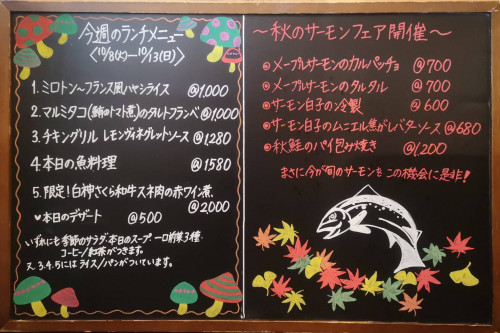 今週のランチメニュー
〈10/8(火)〜10/13(日)〉
1. ミロトン〜フランス風ハヤシライス @1,000
2. マルミタコ(鮪のトマト煮)のタルトフランベ @1,000
3. チキングリル レモンヴィネグレットソース @1,280
4. 本日の魚料理 @1580
5. 限定!白神さくら和牛スネ肉の赤ワイン煮
@2,000
♥本日のデザート @500
いずれにも季節のサラダ・本日のスープ・一口前菜3種・
コーヒー/紅茶がつきます。
又、3.4.5にはライス/パンがついています。
〜秋のサーモンフェア開催〜
◎メープルサーモンのカルパッチョ @700
◎メープルサーモンのタルタル @700
◎サーモン白子の冷製 @600
◎サーモン白子のムニエル焦がしバターソース @680
◎秋鮭のパイ包み焼き @1,200
まさに今が旬のサーモンをこの機会に是非!